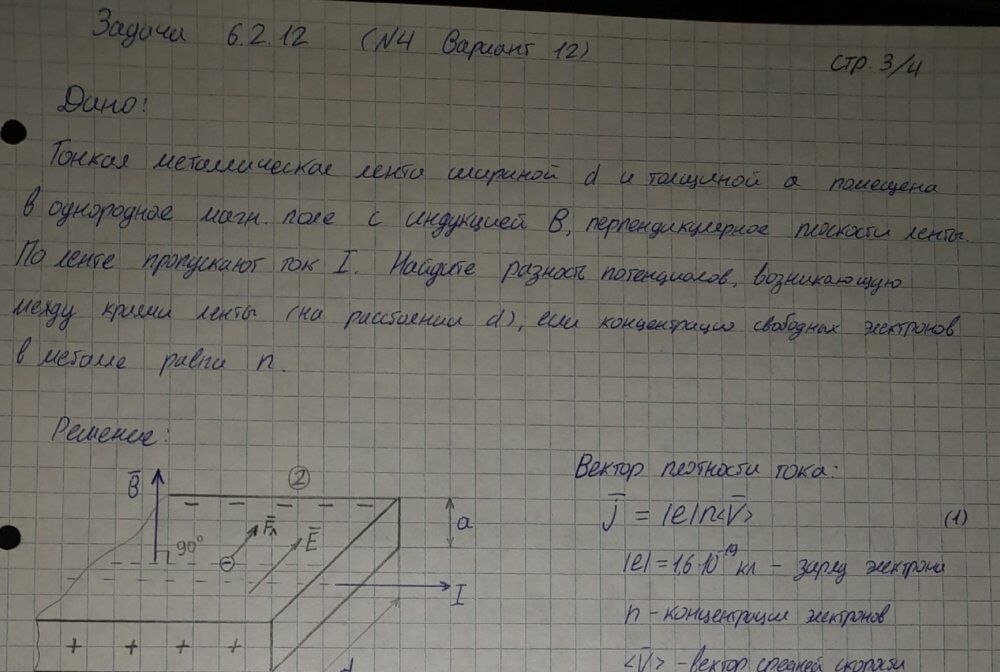 Задача 6.2.12 (N4 Вариант 12)
стр. 3/4
Дано:
Тонкая металлическая лента шириной d и толщиной a помещена
в однородное магн. поле с индукцией B, перпендикулярное плоскости ленты.
По ленте пропускают ток I. Найдите разность потенциалов, возникающую
между краями ленты (на расстоянии d), если концентрация свободных электронов
в металле равна n.
Решение:
B̅
2
90°
F̅л
E̅
a
I
d
Вектор плотности тока:
j̅ = |e|n<V̅> (1)
|e| = 1,6·10⁻¹⁹ Кл – заряд электрона
n – концентрация электронов
<V̅> – вектор средней скорости